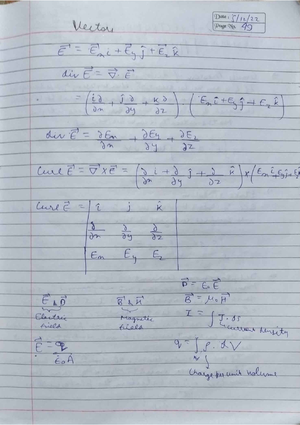 Vectors
Date: 5/12/22
Page No. 49
E⃗ = E⃗x i + E⃗y j + E⃗z k̂
div E⃗ = ∇⃗ · E⃗
= (i∂/∂x + j∂/∂y + k∂/∂z) · (Ex î + Ey j + Ez k̂)
div E⃗ = ∂Ex/∂x + ∂Ey/∂y + ∂Ez/∂z
Curl E⃗ = ∇⃗ × E⃗ = (∂/∂x i + ∂/∂y j + ∂/∂z k̂) × (Ex i + Ey j + Ez k̂)
Curl E⃗ = | î j k̂ |
| ∂/∂x ∂/∂y ∂/∂z |
| Ex Ey Ez |
D⃗ = ε₀ E⃗
E⃗ & D⃗ B⃗ & H⃗ B⃗ = μ₀ H⃗
Electric field
Magnetic field
I = ∫ J · ds
current density
E⃗ = q/ε₀A
q = ∫ ρ · dV
charge per unit volume